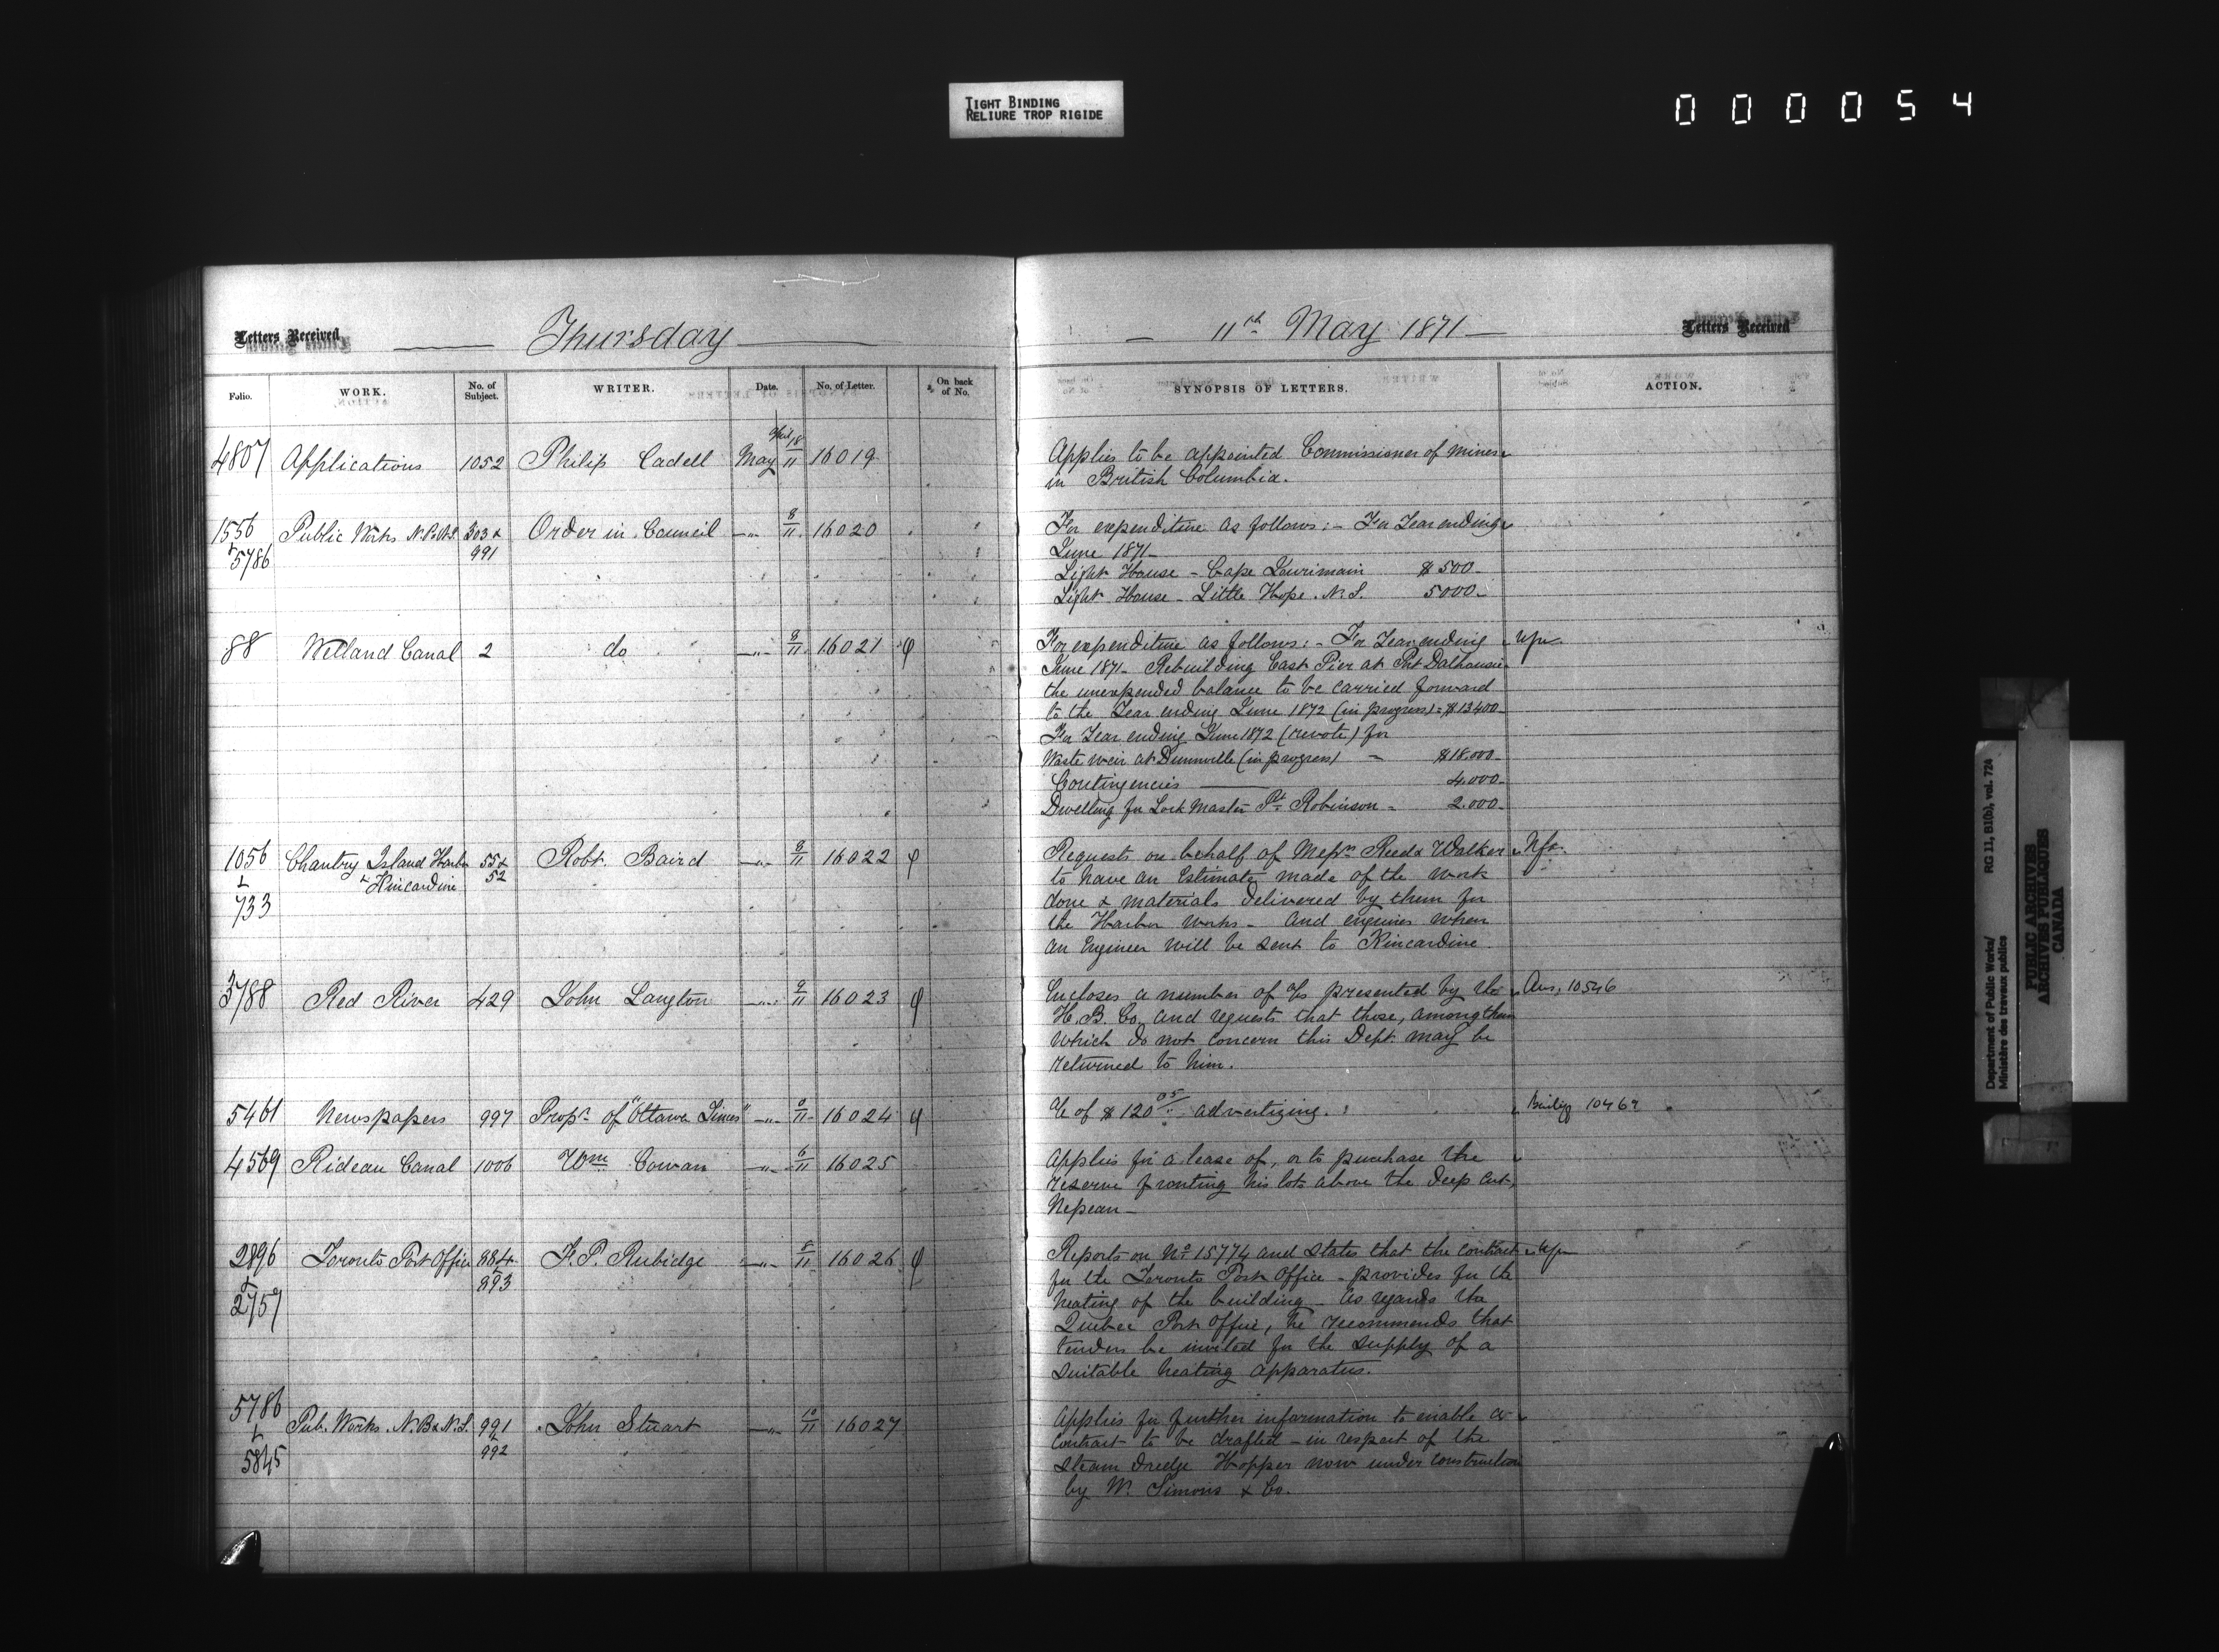 TIGHT BINDING
RELIURE TROP RIGIDE
000054
Letters Received
Thursday
11th May 1871
Letters Received
Folio.
WORK.
No. of Subject.
WRITER.
Date.
No. of Letter.
On back of No.
SYNOPSIS OF LETTERS.
ACTION.
4807 Applications 1052 Philip Cadell May April 18/11 16019
Applies to be appointed Commissioner of mines
in British Columbia.
1556 Public Works N.B & N.S. 303 & Order in Council -"- 8/11 16020
& 5786 991
For expenditure as follows:- For Year ending
June 1871-
Light House - Cape Jourimain $500-
Light House - Little Hope. N.S. 5000-
88 Welland Canal 2 do -"- 8/11 16021 φ
For expenditure as follows:- For Year ending
June 1871- Rebuilding East Pier at Port Dalhousie
the unexpended balance to be carried forward
to the Year ending June 1872 (in progress) = $13400-
For Year ending June 1872 (revote) for
Waste weir at Dunnville (in progress) - $18.000-
Contingencies 4.000-
Dwelling for Lock Master Pt. Robinson - 2.000-
1056 Chantry Island Harbor 55 & Robt. Baird -"- 8/11 16022 φ
& & Kincardine 52
733
Requests on behalf of Messrs Reed & Walker
to have an Estimate made of the work
done & materials delivered by them for
the Harbor works - And enquires when
an Engineer will be sent to Kincardine.
3788 Red River 429 John Langton -"- 9/11 16023 φ
Encloses a number of a/cs presented by the Ans, 10546
H. B. Co, and requests that those, among them
which do not concern this Dept. may be
returned to him.
5461 Newspapers 997 Propr. of "Ottawa Times" -"- 16024 φ
a/c of $120 05/.. advertizing. 10469
4569 Rideau Canal 1006 Wm Cowan -"- 6/11 16025
Applies for a lease of, or to purchase the
reserve fronting his lots above the deep cut,
Nepean-
2896 Toronto Post Office 884 & F. P. Rubidge -"- 8/11 16026 φ
& 893
2757
Reports on No. 15774 and states that the contract
for the Toronto Post Office - provides for the
heating of the building - As regards the
Quebec Post Office, he recommends that
tenders be invited for the supply of a
suitable heating apparatus.
5786 Pub. Works. N.B & N.S. 991 John Stuart -"- 10/11 16027
& 992
5845
Applies for further information to enable a
contract to be drafted - in respect of the
steam dredge Hopper now under construction
by W. Simons & Co.
Department of Public Works/ RG 11, B1(b), vol. 724
Ministère des travaux publics
PUBLIC ARCHIVES
ARCHIVES PUBLIQUES
CANADA